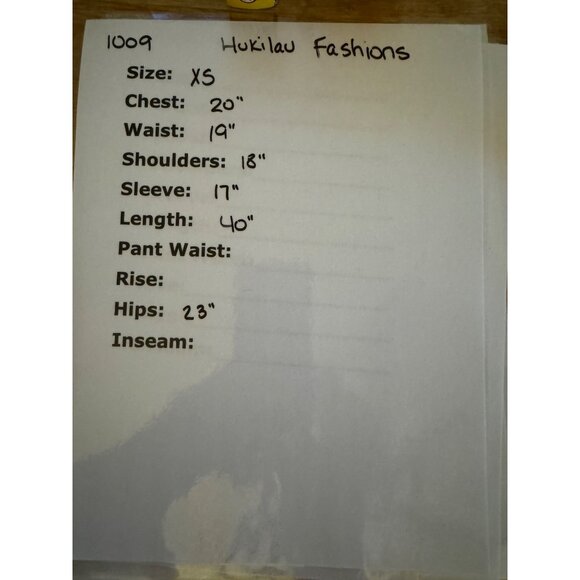 1009 Hukilau Fashions
Size: XS
Chest: 20"
Waist: 19"
Shoulders: 18"
Sleeve: 17"
Length: 40"
Pant Waist:
Rise:
Hips: 23"
Inseam: